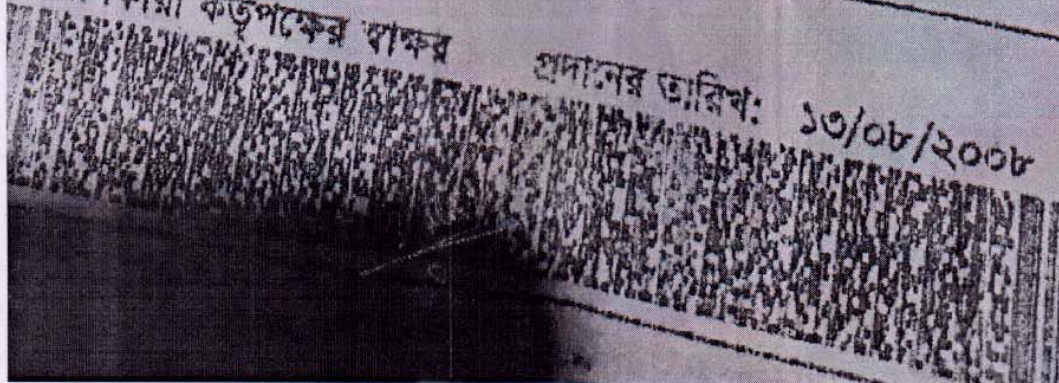 কর্তৃপক্ষের স্বাক্ষর প্রদানের তারিখ: ১৩/০৮/২০০৮